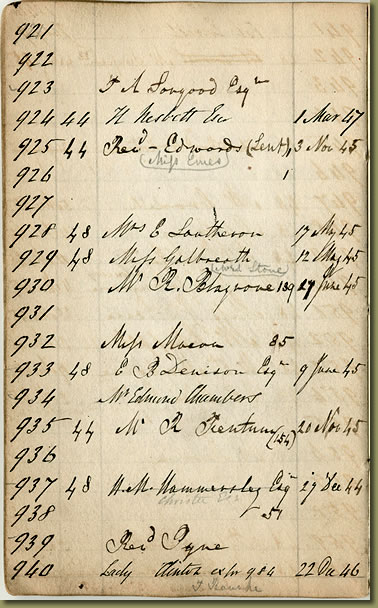 921
922
923 Esqr
924 44 H Nesbett Esq 1 Mar 47
925 44 Revd - Edwards (Lent), 3 Nov 45
(Miss Emes)
926 1
927
928 48 Mrs E 17 My 45
929 48 Miss Galbreath 12 May 45
Stone
930 Mr R. Blagrove 189 27 June 45
931
932 Miss Macon 85
933 48 E B Denison Esqr 9 June 45
934 Mr Edmund Chambers
935 44 Mr R (154) 20 Nov 45
936
937 48 H.M. Hammersley Esq 29 Dec 44
938 51
939 Revd Pyne
940 Lady 984 22 Dec 46